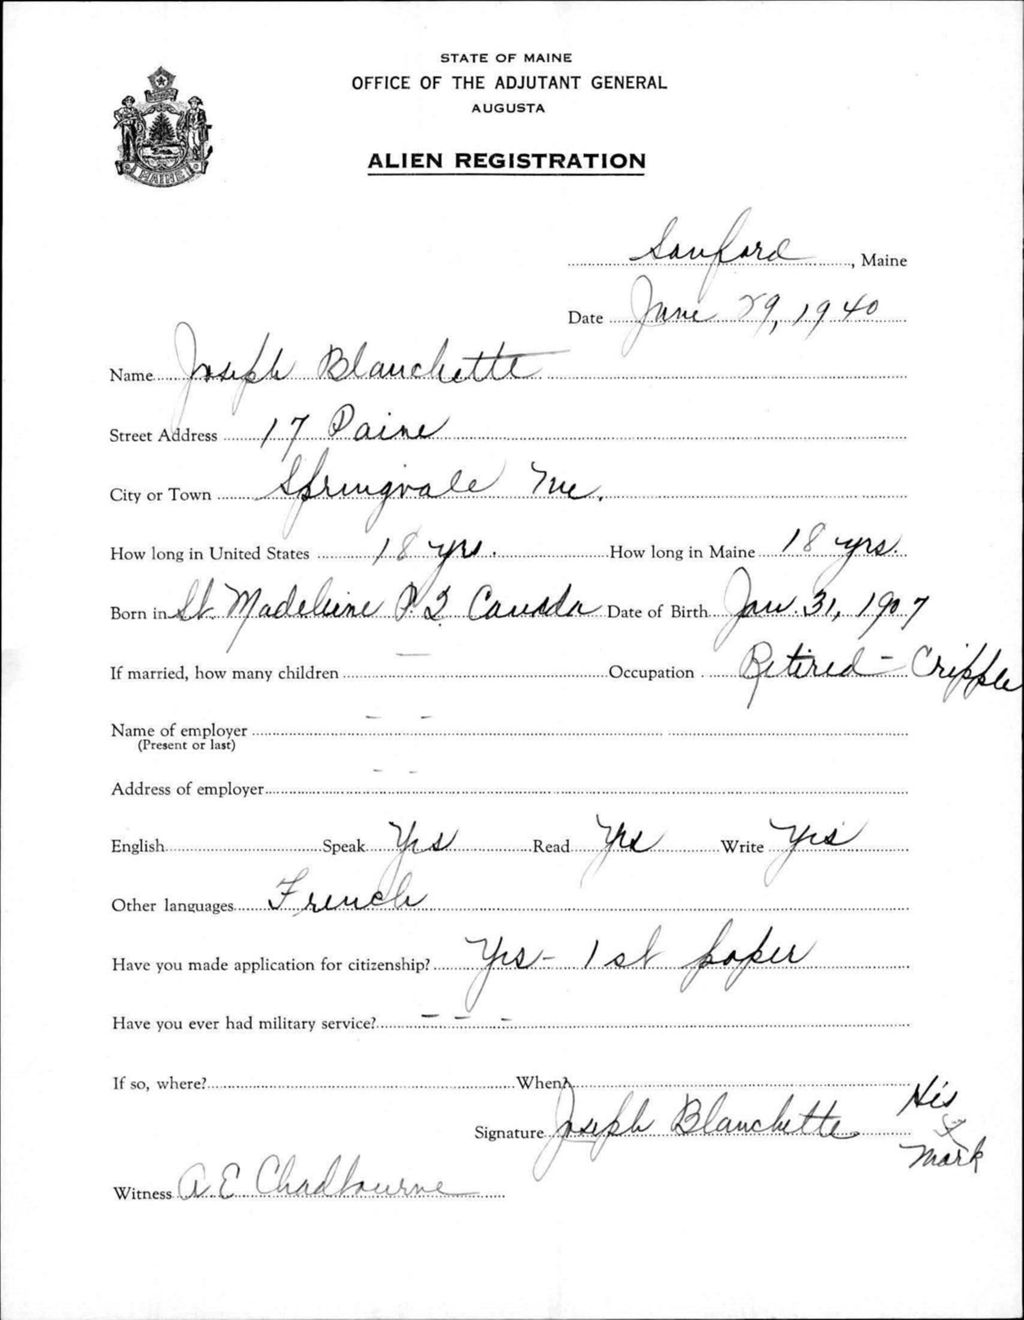 STATE OF MAINE
OFFICE OF THE ADJUTANT GENERAL
AUGUSTA
ALIEN REGISTRATION
MAINE
Sanford, Maine
Date June 29, 1940
Name Joseph Blanchette
Street Address 17 Paine
City or Town Springvale Me.
How long in United States 18 yrs. How long in Maine 18 yrs.
Born in St. Madeleine P.Q Canada Date of Birth Jan. 31, 1907
If married, how many children — Occupation Retired - Cripple
Name of employer - -
(Present or last)
Address of employer - -
English Speak Yes Read Yes Write Yes
Other languages French
Have you made application for citizenship? Yes - 1st paper
Have you ever had military service? - - -
If so, where? When?
Signature Joseph Blanchette His
X
Mark
Witness A. E Chadbourne